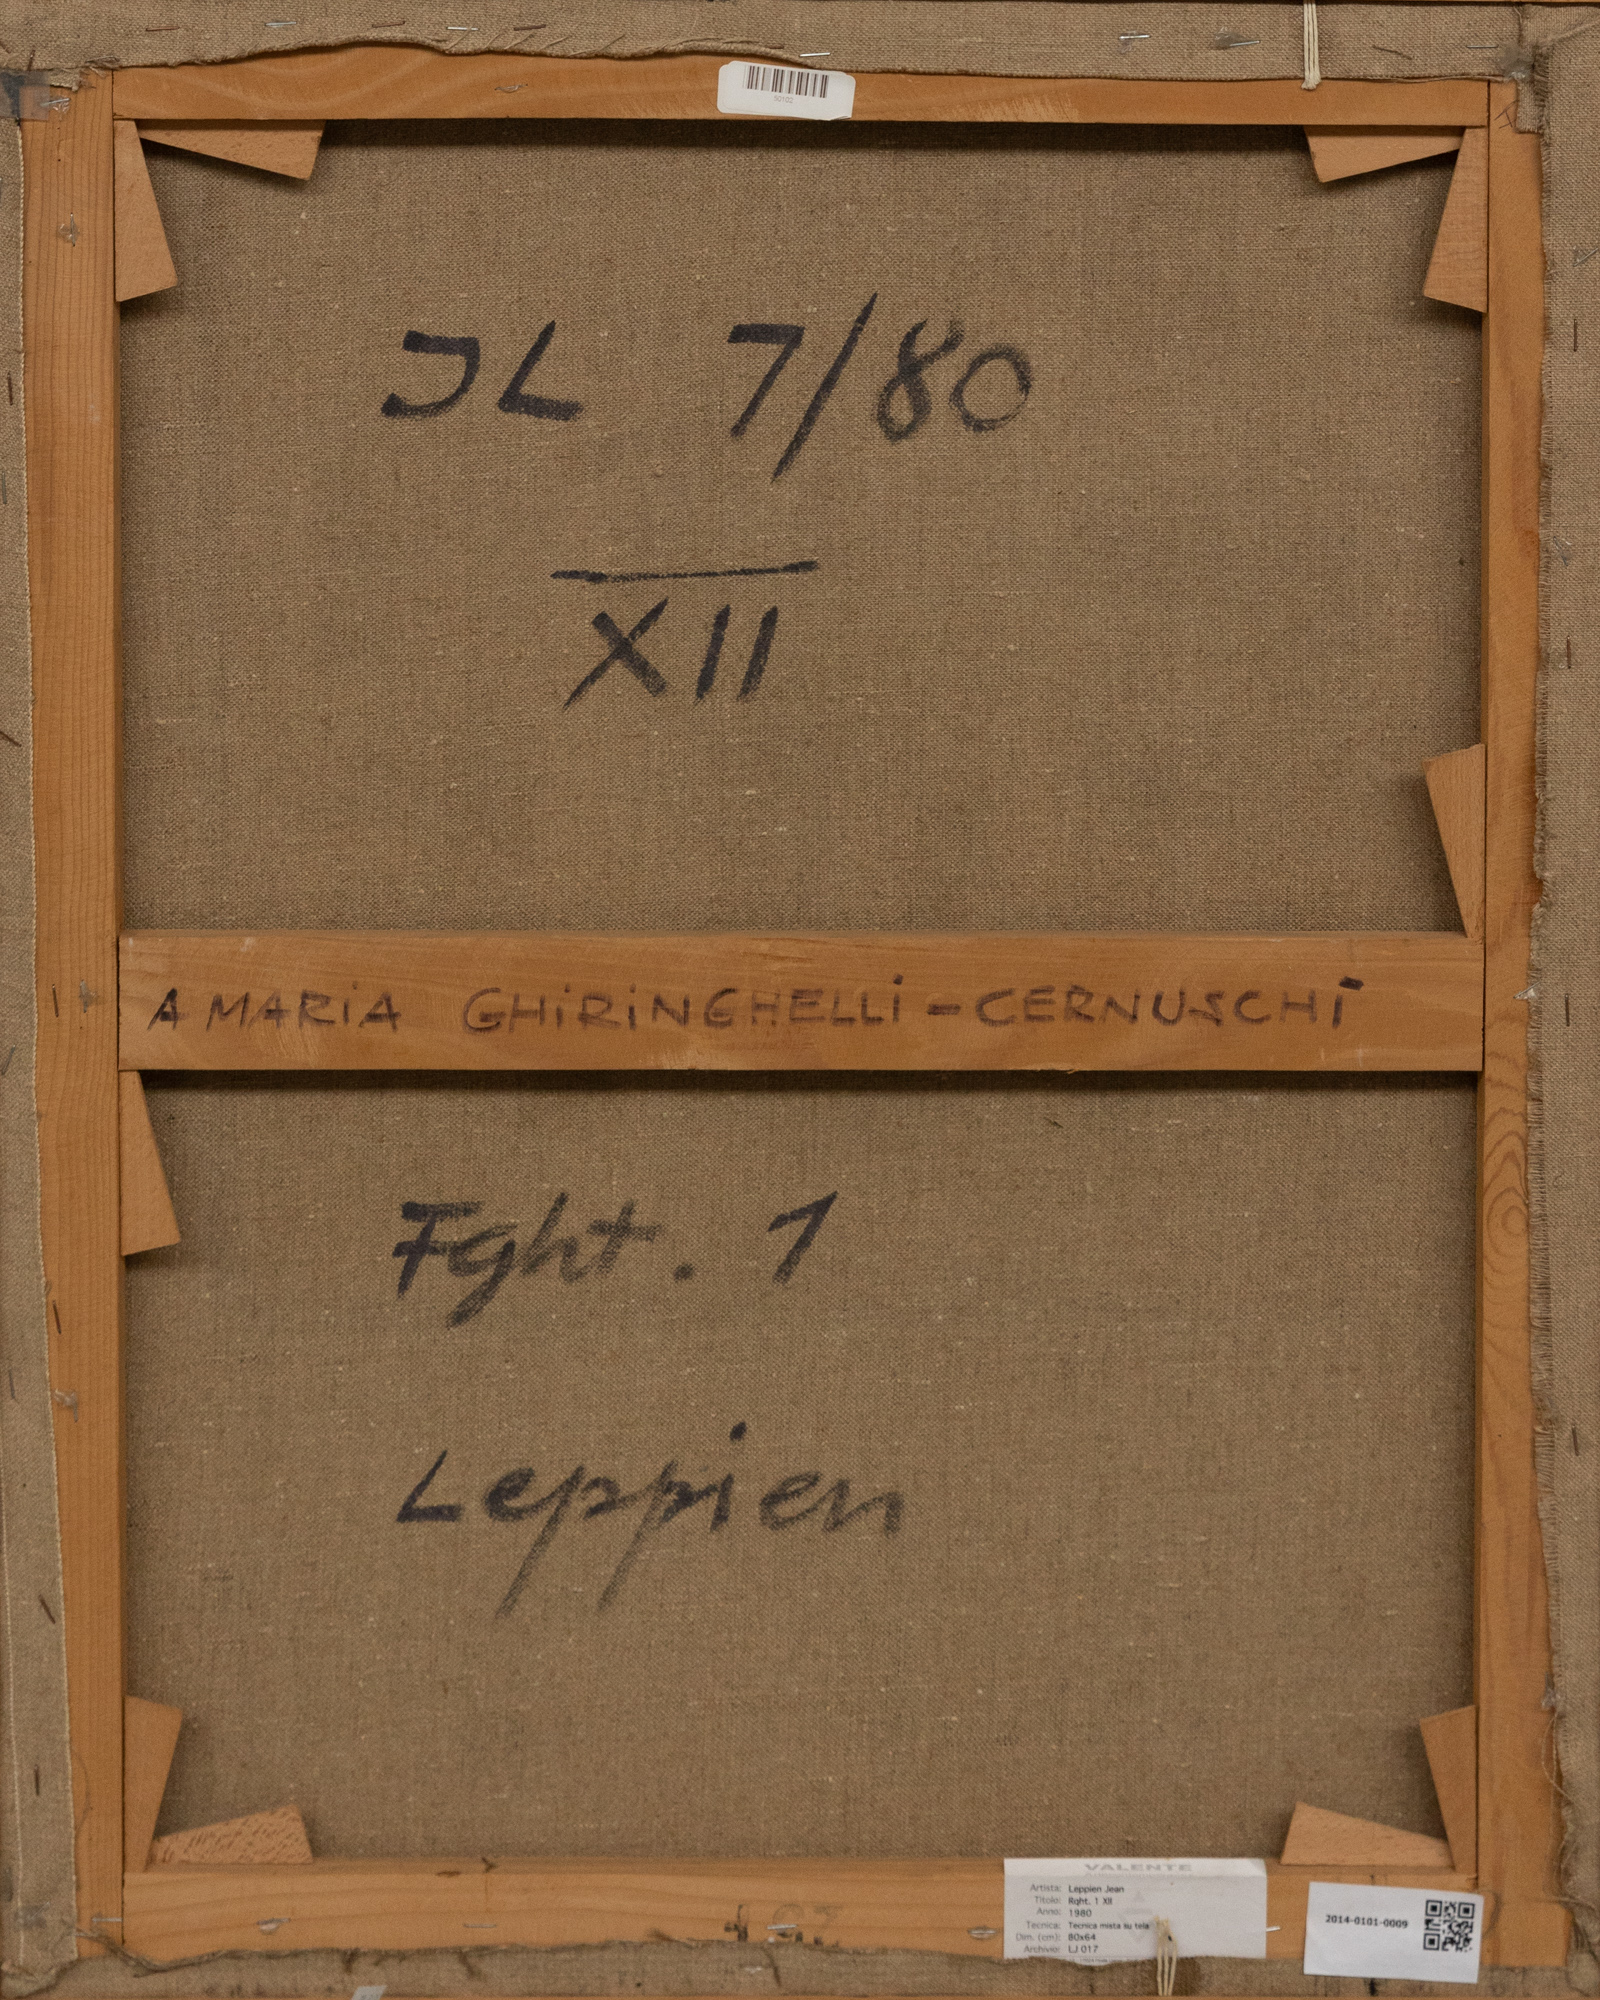 50102
JL 7/80
XII
A MARiA GHiRiNGHELLi - CERNUSCHi
Fght. 1
Leppien
VALENTE
Artista: Leppien Jean
Titolo: Rqht. 1 XII
Anno: 1980
Tecnica: Tecnica mista su tela
Dim. (cm): 80x64
Archivio: LJ 017
2014-0101-0009